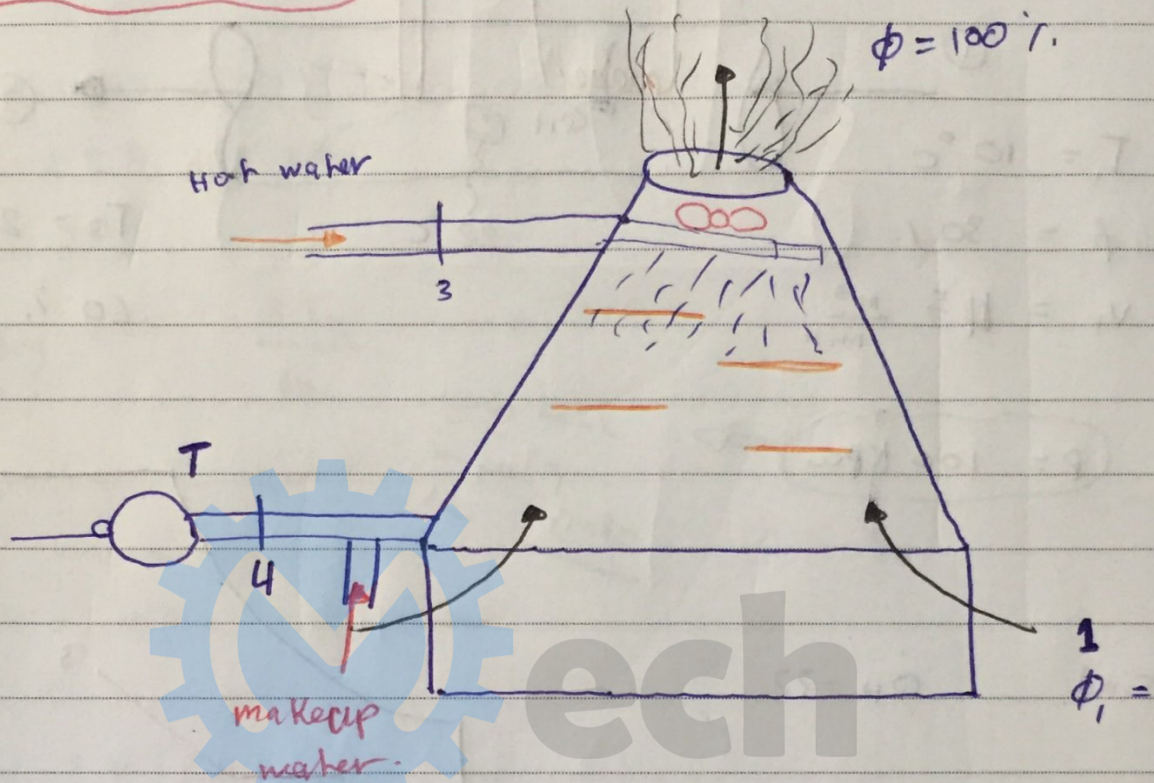 φ = 100 %.
Hot water
3
T
4
1
φ₁ =
makeup
water.
ech